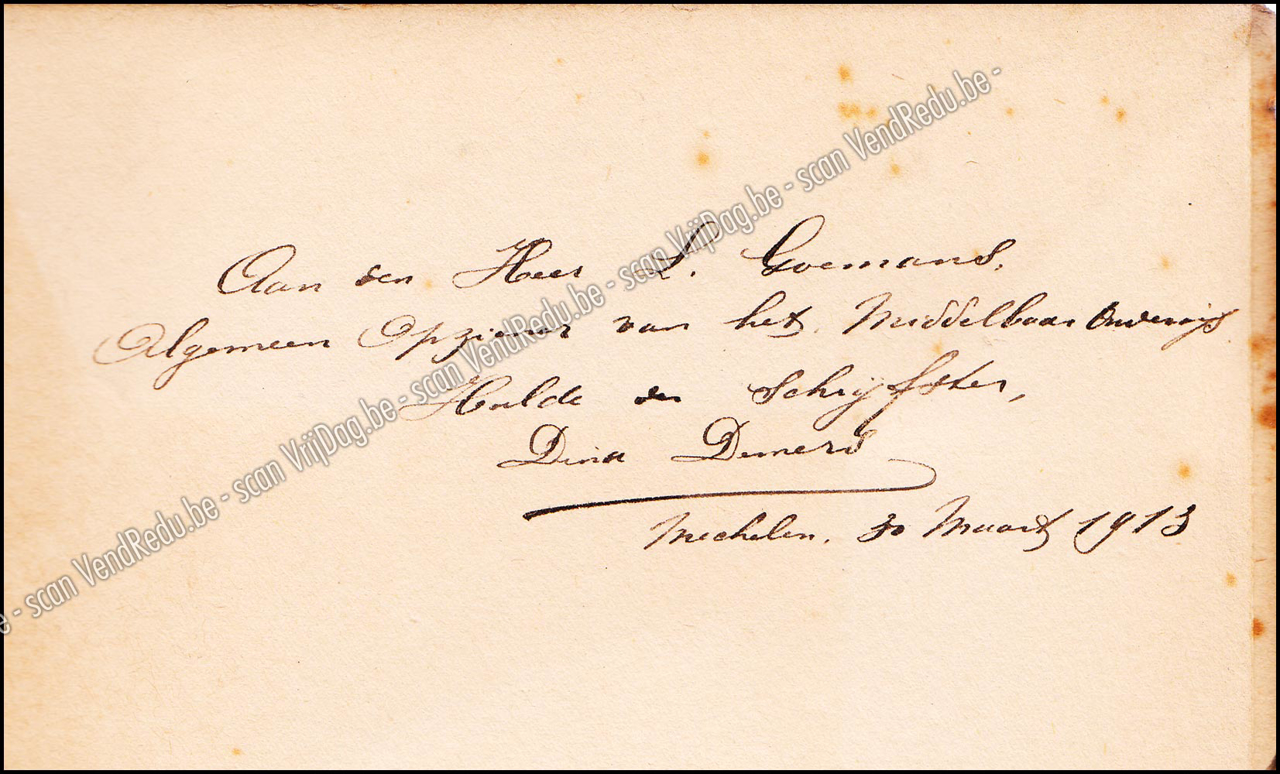 Aan den Heer L. Goemans.
Algemeen Opziener van het Middelbaar Onderwijs.
Hulde der Schrijfster,
Dina Demers
Mechelen, 30 Maart 1913
- scan VendRedu.be - scan VrijDag.be - scan VendRedu.be - scan VrijDag.be - scan VendRedu.be -